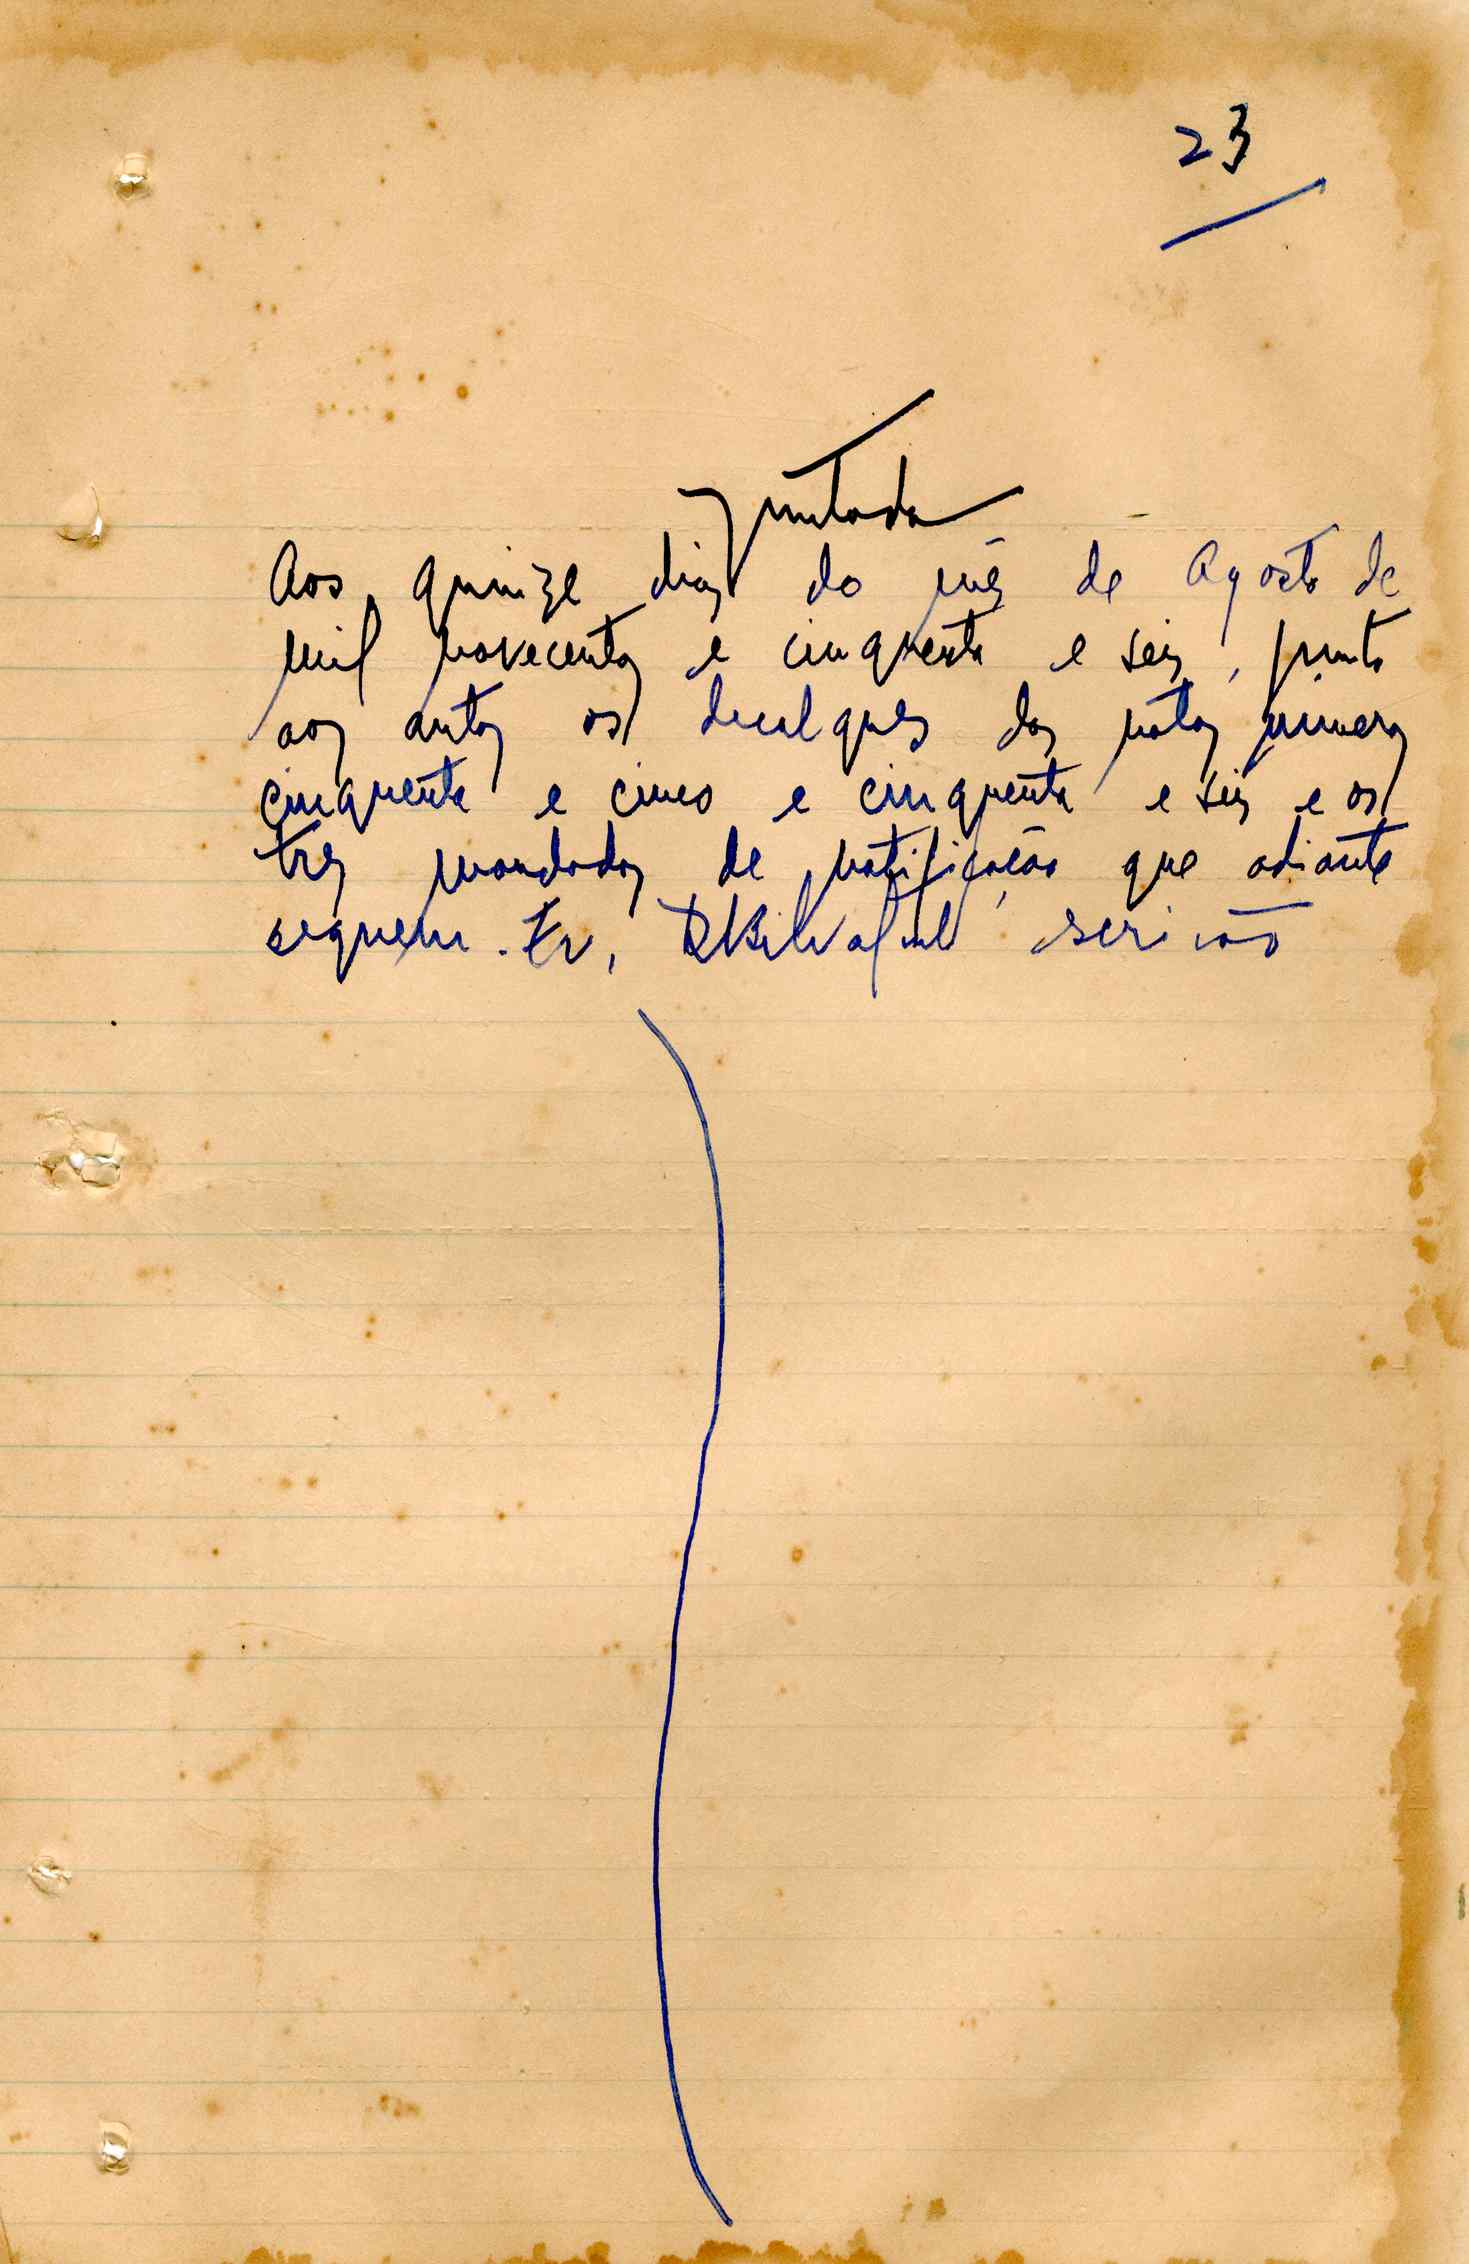 23
Juntada
Aos quinze dias do mês de Agosto de
mil novecentos e cinquenta e seis, junto
aos autos os decalques das notas numeros
cinquenta e cinco e cinquenta e seis e os
tres mandados de notificação que adiante
seguem. Eu, escrivão